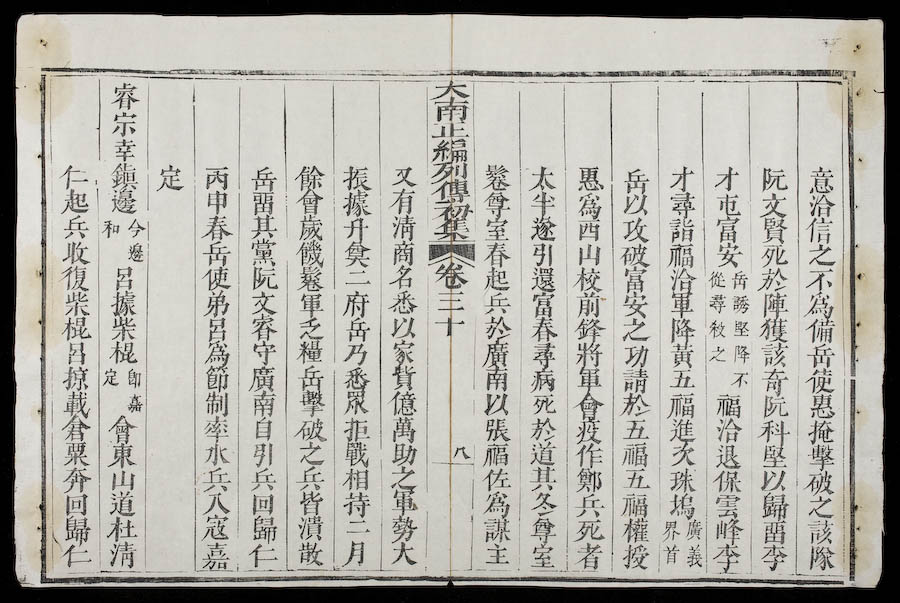 意洽信之不為備岳使惠掩擊破之該隊
阮文賢死於陣獲該奇阮科堅以歸畱李
才屯富安岳誘堅降不從尋殺之福洽退保雲峰李
才尋詣福洽軍降黃五福進次珠塢廣義界首
岳以攻破富安之功請於五福五福權授
惠為西山校前鋒將軍會疫作鄭兵死者
太半遂引還富春尋病死於道其冬尊室
鬈尊室春起兵於廣南以張福佐為謀主
大南正編列傳初集 卷三十 八
又有清商名悉以家貲億萬助之軍勢大
振據升奠二府岳乃悉眾拒戰相持二月
餘會歲饑鬈軍乏糧岳擊破之兵皆潰散
岳畱其黨阮文睿守廣南自引兵回歸仁
丙申春岳使弟呂為節制率水兵入寇嘉
定
睿宗幸鎮邊今邊和呂據柴棍即嘉定會東山道杜清
仁起兵收復柴棍呂掠載倉粟奔回歸仁